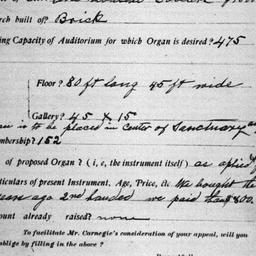 rch built of? Brick
ing Capacity of Auditorium for which Organ is desired? 475
Floor? 80 ft long 45 ft wide
Gallery? 45 X 15
an is to be placed in Center of Sanctuary
mbership? 152
of proposed Organ? (i, e, the instrument itself) as applied f
rticulars of present Instrument, Age, Price, &c. We bought the
years ago 2nd handed we paid $800.
ount already raised? none
To facilitate Mr. Carnegie's consideration of your appeal, will you
oblige by filling in the above?